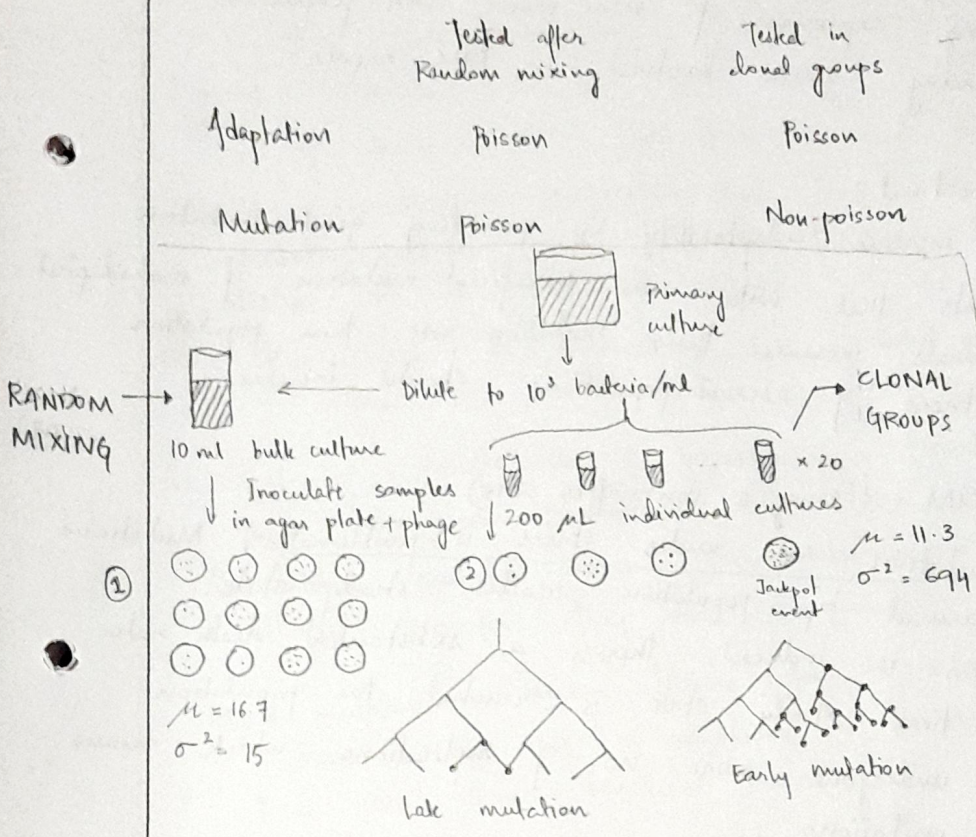 Tested after Random mixing
Tested in clonal groups
Adaptation Poisson Poisson
Mutation Poisson Non-poisson
Primary culture
Dilute to 10³ bacteria/ml
RANDOM MIXING
CLONAL GROUPS
10 ml bulk culture
× 20
Inoculate samples
in agar plate + phage
200 μL individual cultures
1
2
μ = 11.3
σ² = 694
Jackpot event
μ = 16.7
σ² = 15
Late mutation
Early mutation